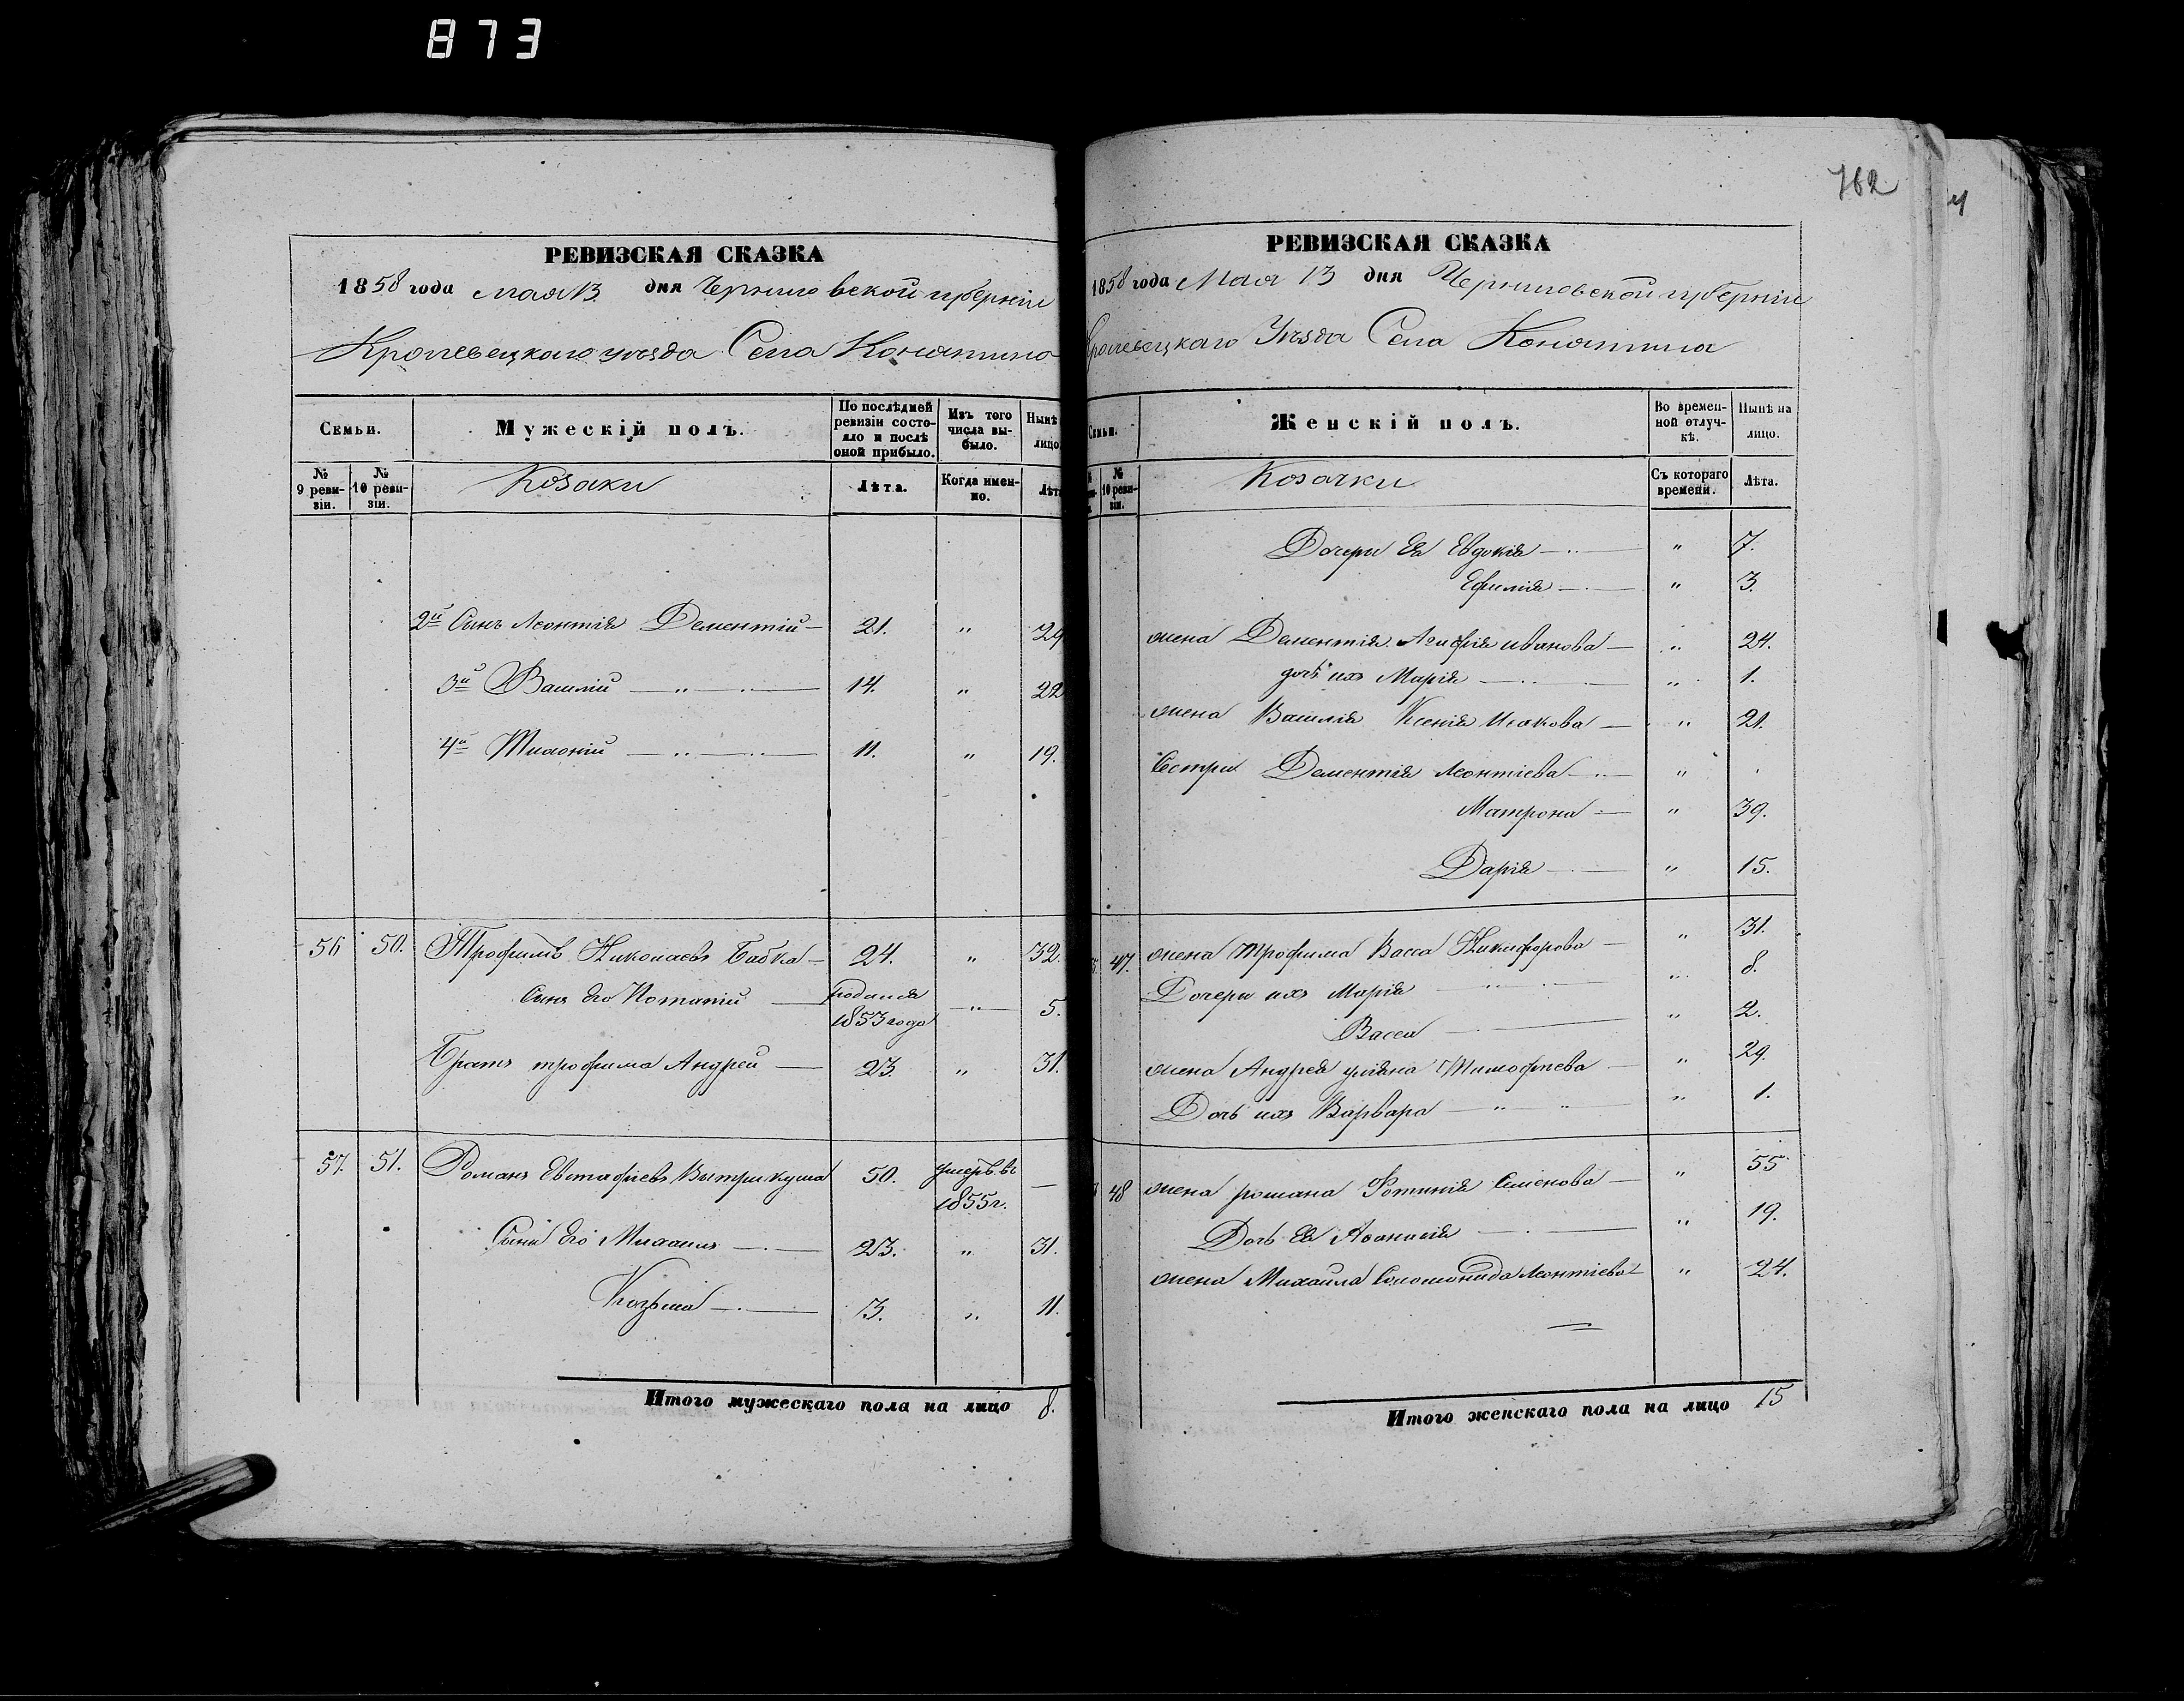 873
РЕВИЗСКАЯ СКАЗКА
1858 года мая 13 дня Черниговской губерніи
Кролевецкаго уѣзда Села Конятина
Семьи.
Мужескій полъ.
По послѣдней ревизіи состояло и послѣ оной прибыло.
Изъ того числа выбыло.
Нынѣ лицо.
№ 9 ревизіи.
№ 10 ревизіи.
Козаки
Лѣта.
Когда именно.
Лѣта
2й Синъ Леонтія Дементій — 21. " 29
3й Василій — " — 14. " 22
4й Тихоній — " — " — 11. " 19.
56 50. Трофимъ Николаевъ Бабка — 24. " 32.
Синъ Его Потапій — родился 1853 года — " — 5.
Братъ трофима Андрей — 23 " 31.
57. 51. Романъ Евстафіевъ Витрикуша 50. умеръ въ 1855 г. —
Сыны Его Михаилъ — 23. " 31.
Козьма — 3. " 11.
Итого мужескаго пола на лицо 8.
762
РЕВИЗСКАЯ СКАЗКА
1858 года Мая 13 дня Черниговской губерніи
Кролевецкаго Уѣзда Села Конятина
Семьи.
Женскій полъ.
Во временной отлучкѣ.
Нынѣ на лицо.
№ 10 ревизіи.
Козачки
Съ котораго времени.
Лѣта.
Дочери Ея Евдокія — " 7.
Ефимія — " 3.
жена Дементія иванова — " 24.
дочь ихъ Марія — " 1.
жена Василія Ксенія Исакова — " 21.
Сестры Дементія Леонтіева — "
Матрона — " 39.
Дарія — " 15.
47. жена трофима Васса Никифорова — " 31.
Дочери ихъ Марія " 8.
Васса — " 2.
жена Андрея уліяна Тимофіева — " 29.
Дочь ихъ Варвара — " — " " 1.
48 жена романа Фотинія Семенова — " 55
Дочь Ея Афанасія — " 19.
жена Михаила Соломонида Леонтіева — " 24.
Итого женскаго пола на лицо 15